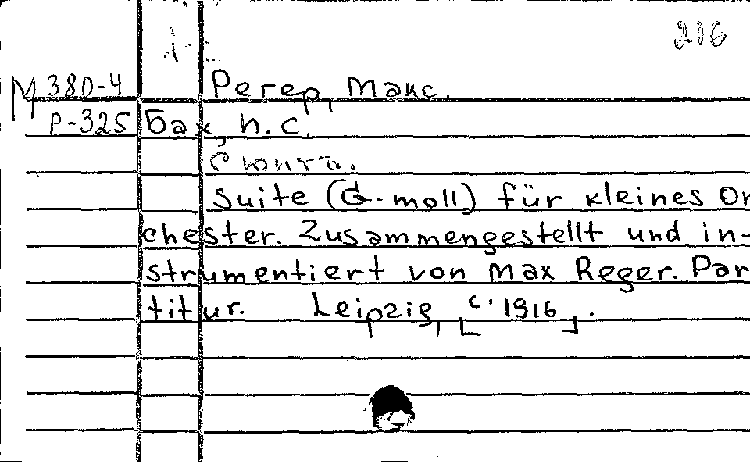 216
М 380-4 Регер, Макс.
Р-325 Бах, И.С.
Сюита.
Suite (G-moll) für kleines Or
chester. Zusammengestellt und in-
strumentiert von Max Reger. Par
titur. Leipzig, [c. 1916].